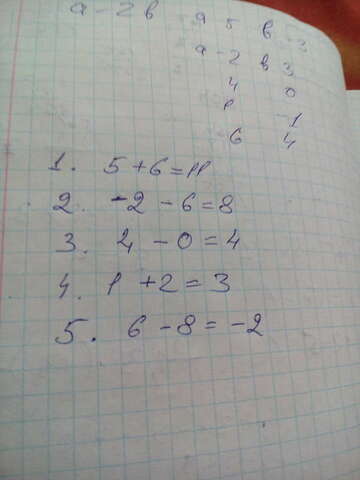 а - 2в а 5 в -3
а -2 в 3
4 0
1 -1
6 4
1. 5 + 6 = 11
2. -2 - 6 = 8
3. 4 - 0 = 4
4. 1 + 2 = 3
5. 6 - 8 = -2